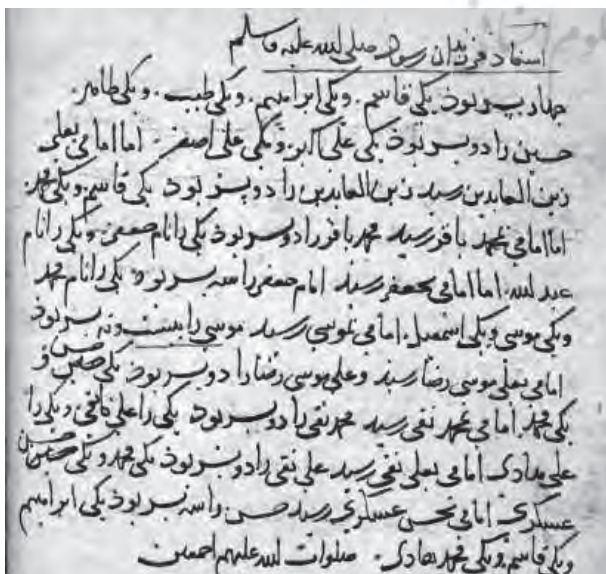 اسفاد فرزندان رسول صلی الله علیه و سلم
چهار پسر بوذ یکی قاسم . و یکی ابراهیم . و یکی طیب . و یکی طاهر .
حسین را دو پسر بوذ یکی علی اکبر . و یکی علی اصغر . اما امامی بعلی
زین العابدین رسید زین العابدین را دو پسر بوذ یکی قاسم و یکی محمد .
اما امامی بمحمد باقر رسید محمد باقر را دو پسر بوذ یکی را نام جعفر و یکی را نام
عبد الله . اما امامی بجعفر رسید امام جعفر را سه پسر بوذ یکی را نام محمد
و یکی موسی و یکی اسمعیل . امامی بموسی رسید موسی را بیست و نه پسر بوذ
امامی بعلی موسی رضا رسید و علی موسی رضا را دو پسر بوذ یکی حسن و
یکی محمد . امامی بمحمد تقی رسید محمد تقی را دو پسر بوذ یکی را علی نقی و یکی را
علی هادی . امامی بعلی نقی رسید علی نقی را دو پسر بوذ یکی محمد و یکی حسن
عسکری . امامی بحسن عسکری رسید حسن را سه پسر بوذ یکی ابراهیم
و یکی قاسم و یکی محمد هادی . صلوات الله علیهم اجمعین